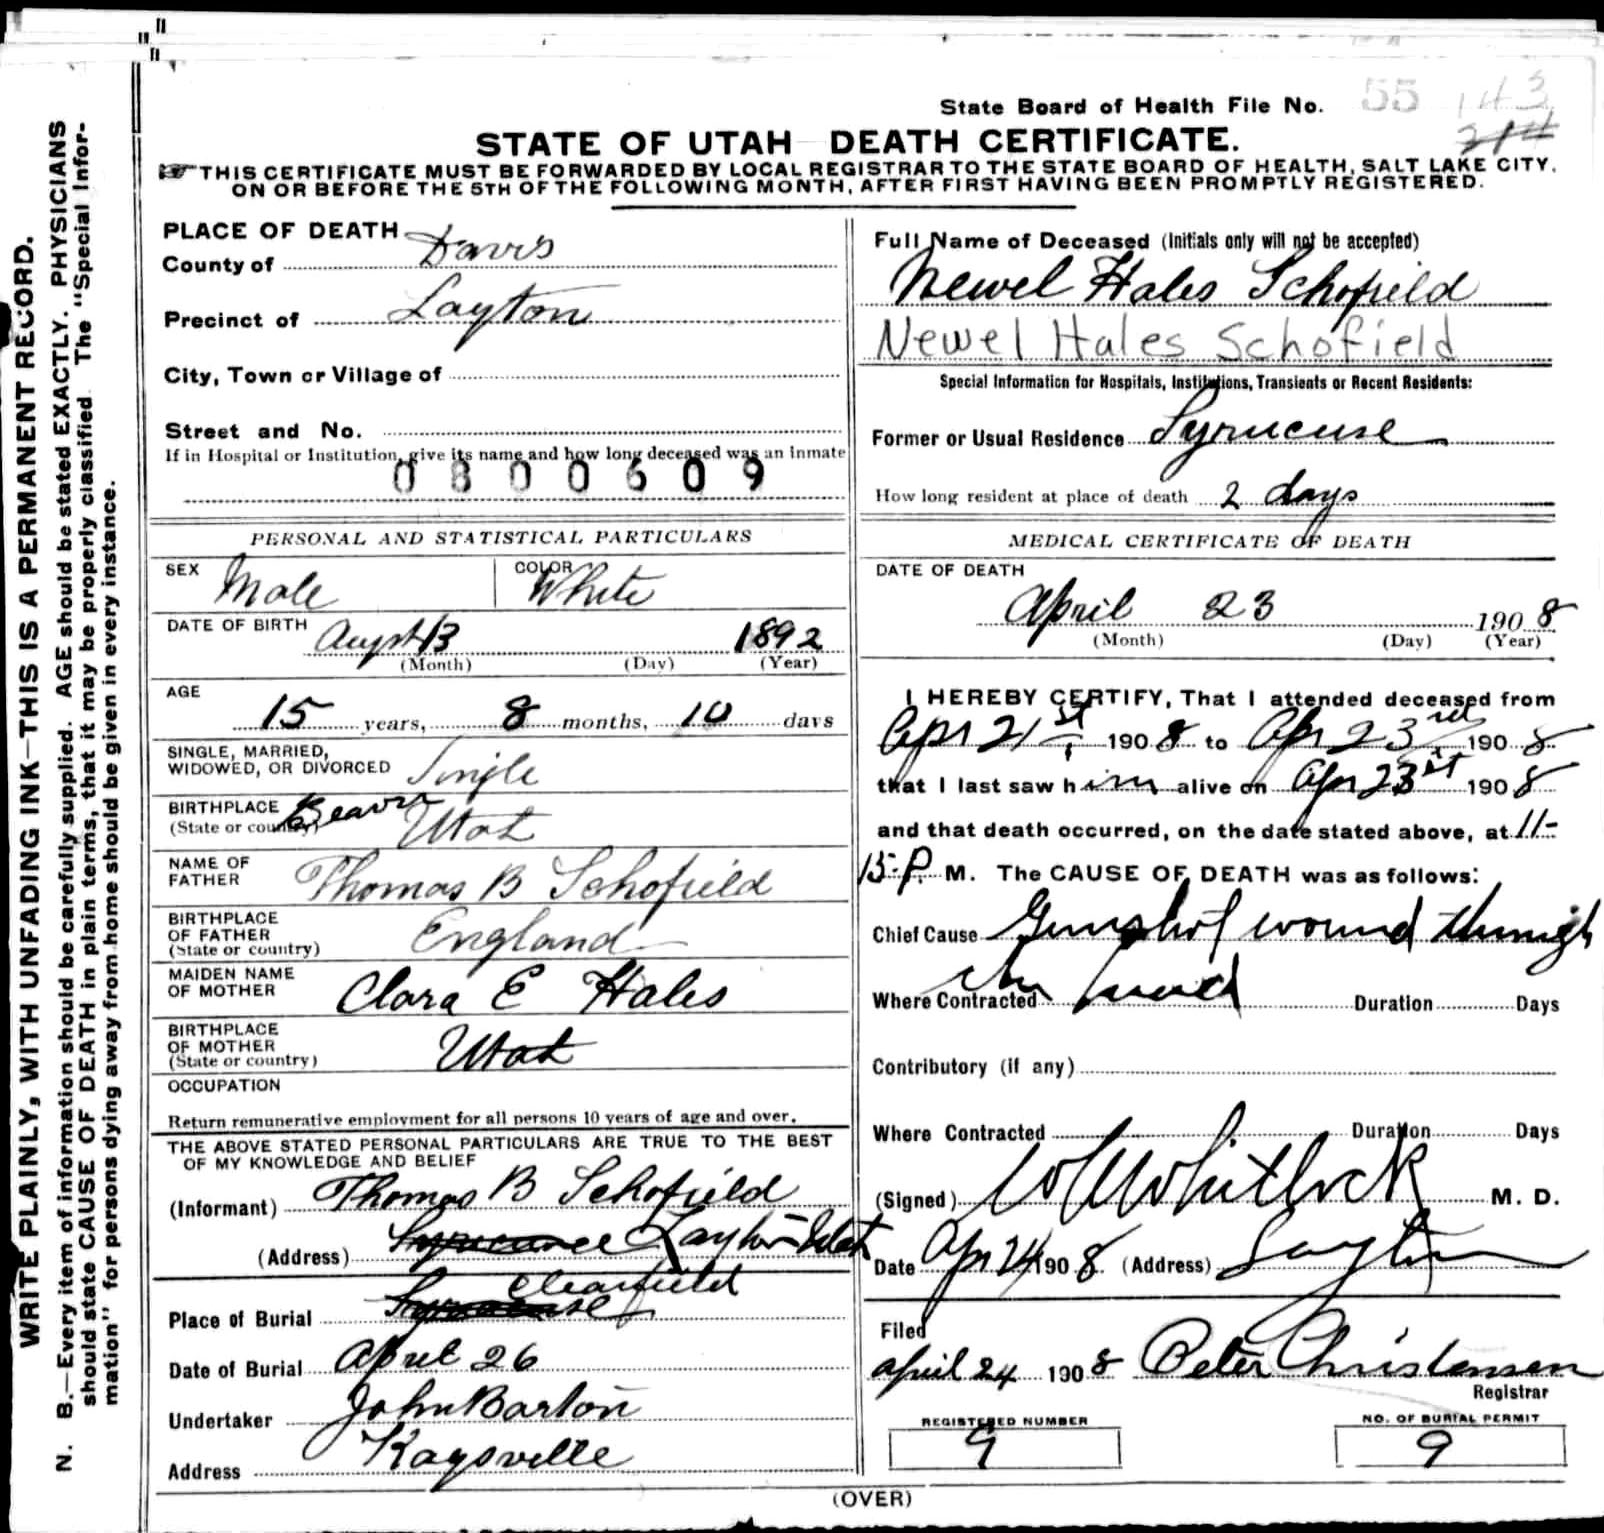 WRITE PLAINLY, WITH UNFADING INK—THIS IS A PERMANENT RECORD.
N. B.—Every item of information should be carefully supplied. AGE should be stated EXACTLY. PHYSICIANS
should state CAUSE OF DEATH in plain terms, that it may be properly classified. The "Special Infor-
mation" for persons dying away from home should be given in every instance.
State Board of Health File No. 55 143
214
STATE OF UTAH DEATH CERTIFICATE.
THIS CERTIFICATE MUST BE FORWARDED BY LOCAL REGISTRAR TO THE STATE BOARD OF HEALTH, SALT LAKE CITY,
ON OR BEFORE THE 5TH OF THE FOLLOWING MONTH, AFTER FIRST HAVING BEEN PROMPTLY REGISTERED.
PLACE OF DEATH
County of Davis
Precinct of Layton
City, Town or Village of
Street and No.
If in Hospital or Institution, give its name and how long deceased was an inmate
0800609
PERSONAL AND STATISTICAL PARTICULARS
SEX Male COLOR White
DATE OF BIRTH Augst 13 1892
(Month) (Day) (Year)
AGE
15 years, 8 months, 10 days
SINGLE, MARRIED,
WIDOWED, OR DIVORCED Single
BIRTHPLACE Beaver
(State or country) Utah
NAME OF
FATHER Thomas B Schofield
BIRTHPLACE
OF FATHER England
(State or country)
MAIDEN NAME
OF MOTHER Clara E Hales
BIRTHPLACE
OF MOTHER Utah
(State or country)
OCCUPATION
Return remunerative employment for all persons 10 years of age and over.
THE ABOVE STATED PERSONAL PARTICULARS ARE TRUE TO THE BEST
OF MY KNOWLEDGE AND BELIEF
(Informant) Thomas B Schofield
(Address) Syracuse Layton Utah
Clearfield
Place of Burial Syracuse
Date of Burial April 26
Undertaker John Barton
Address Kaysville
Full Name of Deceased (Initials only will not be accepted)
Newel Hales Schofield
Newel Hales Schofield
Special Information for Hospitals, Institutions, Transients or Recent Residents:
Former or Usual Residence Syracuse
How long resident at place of death 2 days
MEDICAL CERTIFICATE OF DEATH
DATE OF DEATH
April 23 1908
(Month) (Day) (Year)
I HEREBY CERTIFY, That I attended deceased from
Apr 21st 1908 to Apr 23rd 1908
that I last saw him alive on Apr 23st 1908
and that death occurred, on the date stated above, at 11-
15 P. M. The CAUSE OF DEATH was as follows:
Chief Cause Gunshot wound through
the head
Where Contracted Duration Days
Contributory (if any)
Where Contracted Duration Days
(Signed) Whitlock M. D.
Date Apr 24 1908 (Address) Layton
Filed
April 24 1908 Peter Christensen
Registrar
REGISTERED NUMBER
9
NO. OF BURIAL PERMIT
9
(OVER)